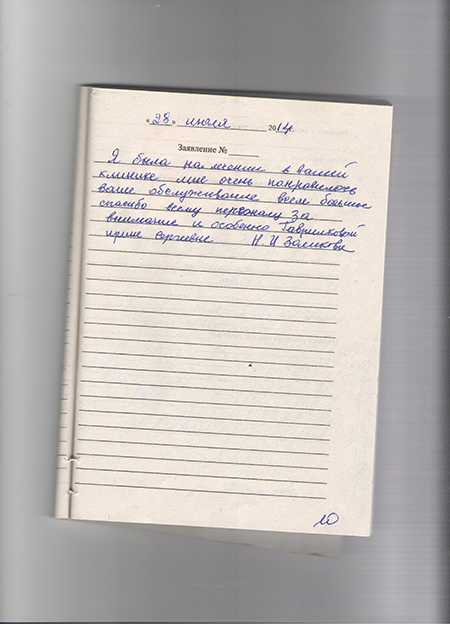 « 28 » июля 2014.
Заявление №
Я была на лечении в вашей
клинике мне очень понравилось
ваше обслуживание всем большое
спасибо всему персоналу за
внимание и особенно Гавриловой
ирине Сергеевне Н И
10